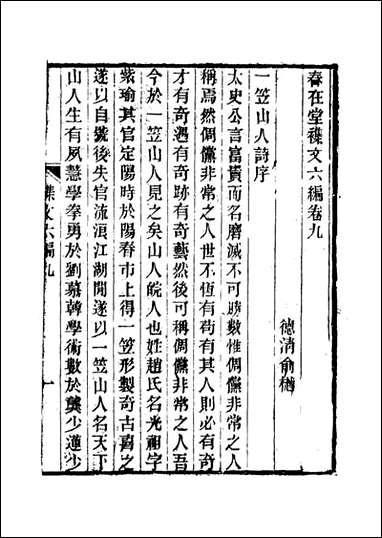 春在堂襍文六編卷九
德清俞樾
一笠山人詩序
太史公言富貴而名磨滅不可勝數惟倜儻非常之人
稱焉然倜儻非常之人世不恆有苟有其人則必有奇
才有奇遇有奇跡有奇藝然後可稱倜儻非常之人吾
今於一笠山人見之矣山人皖人也姓趙氏名光祖字
紫瑜其官定陽時於陽春市上得一笠形製奇古喜之
遂以自號後失官流滇江湖閒遂以一笠山人名天下
山人生有夙慧學拳勇於劉慕韓學術數於龔少蓮少
襍文六編九
一